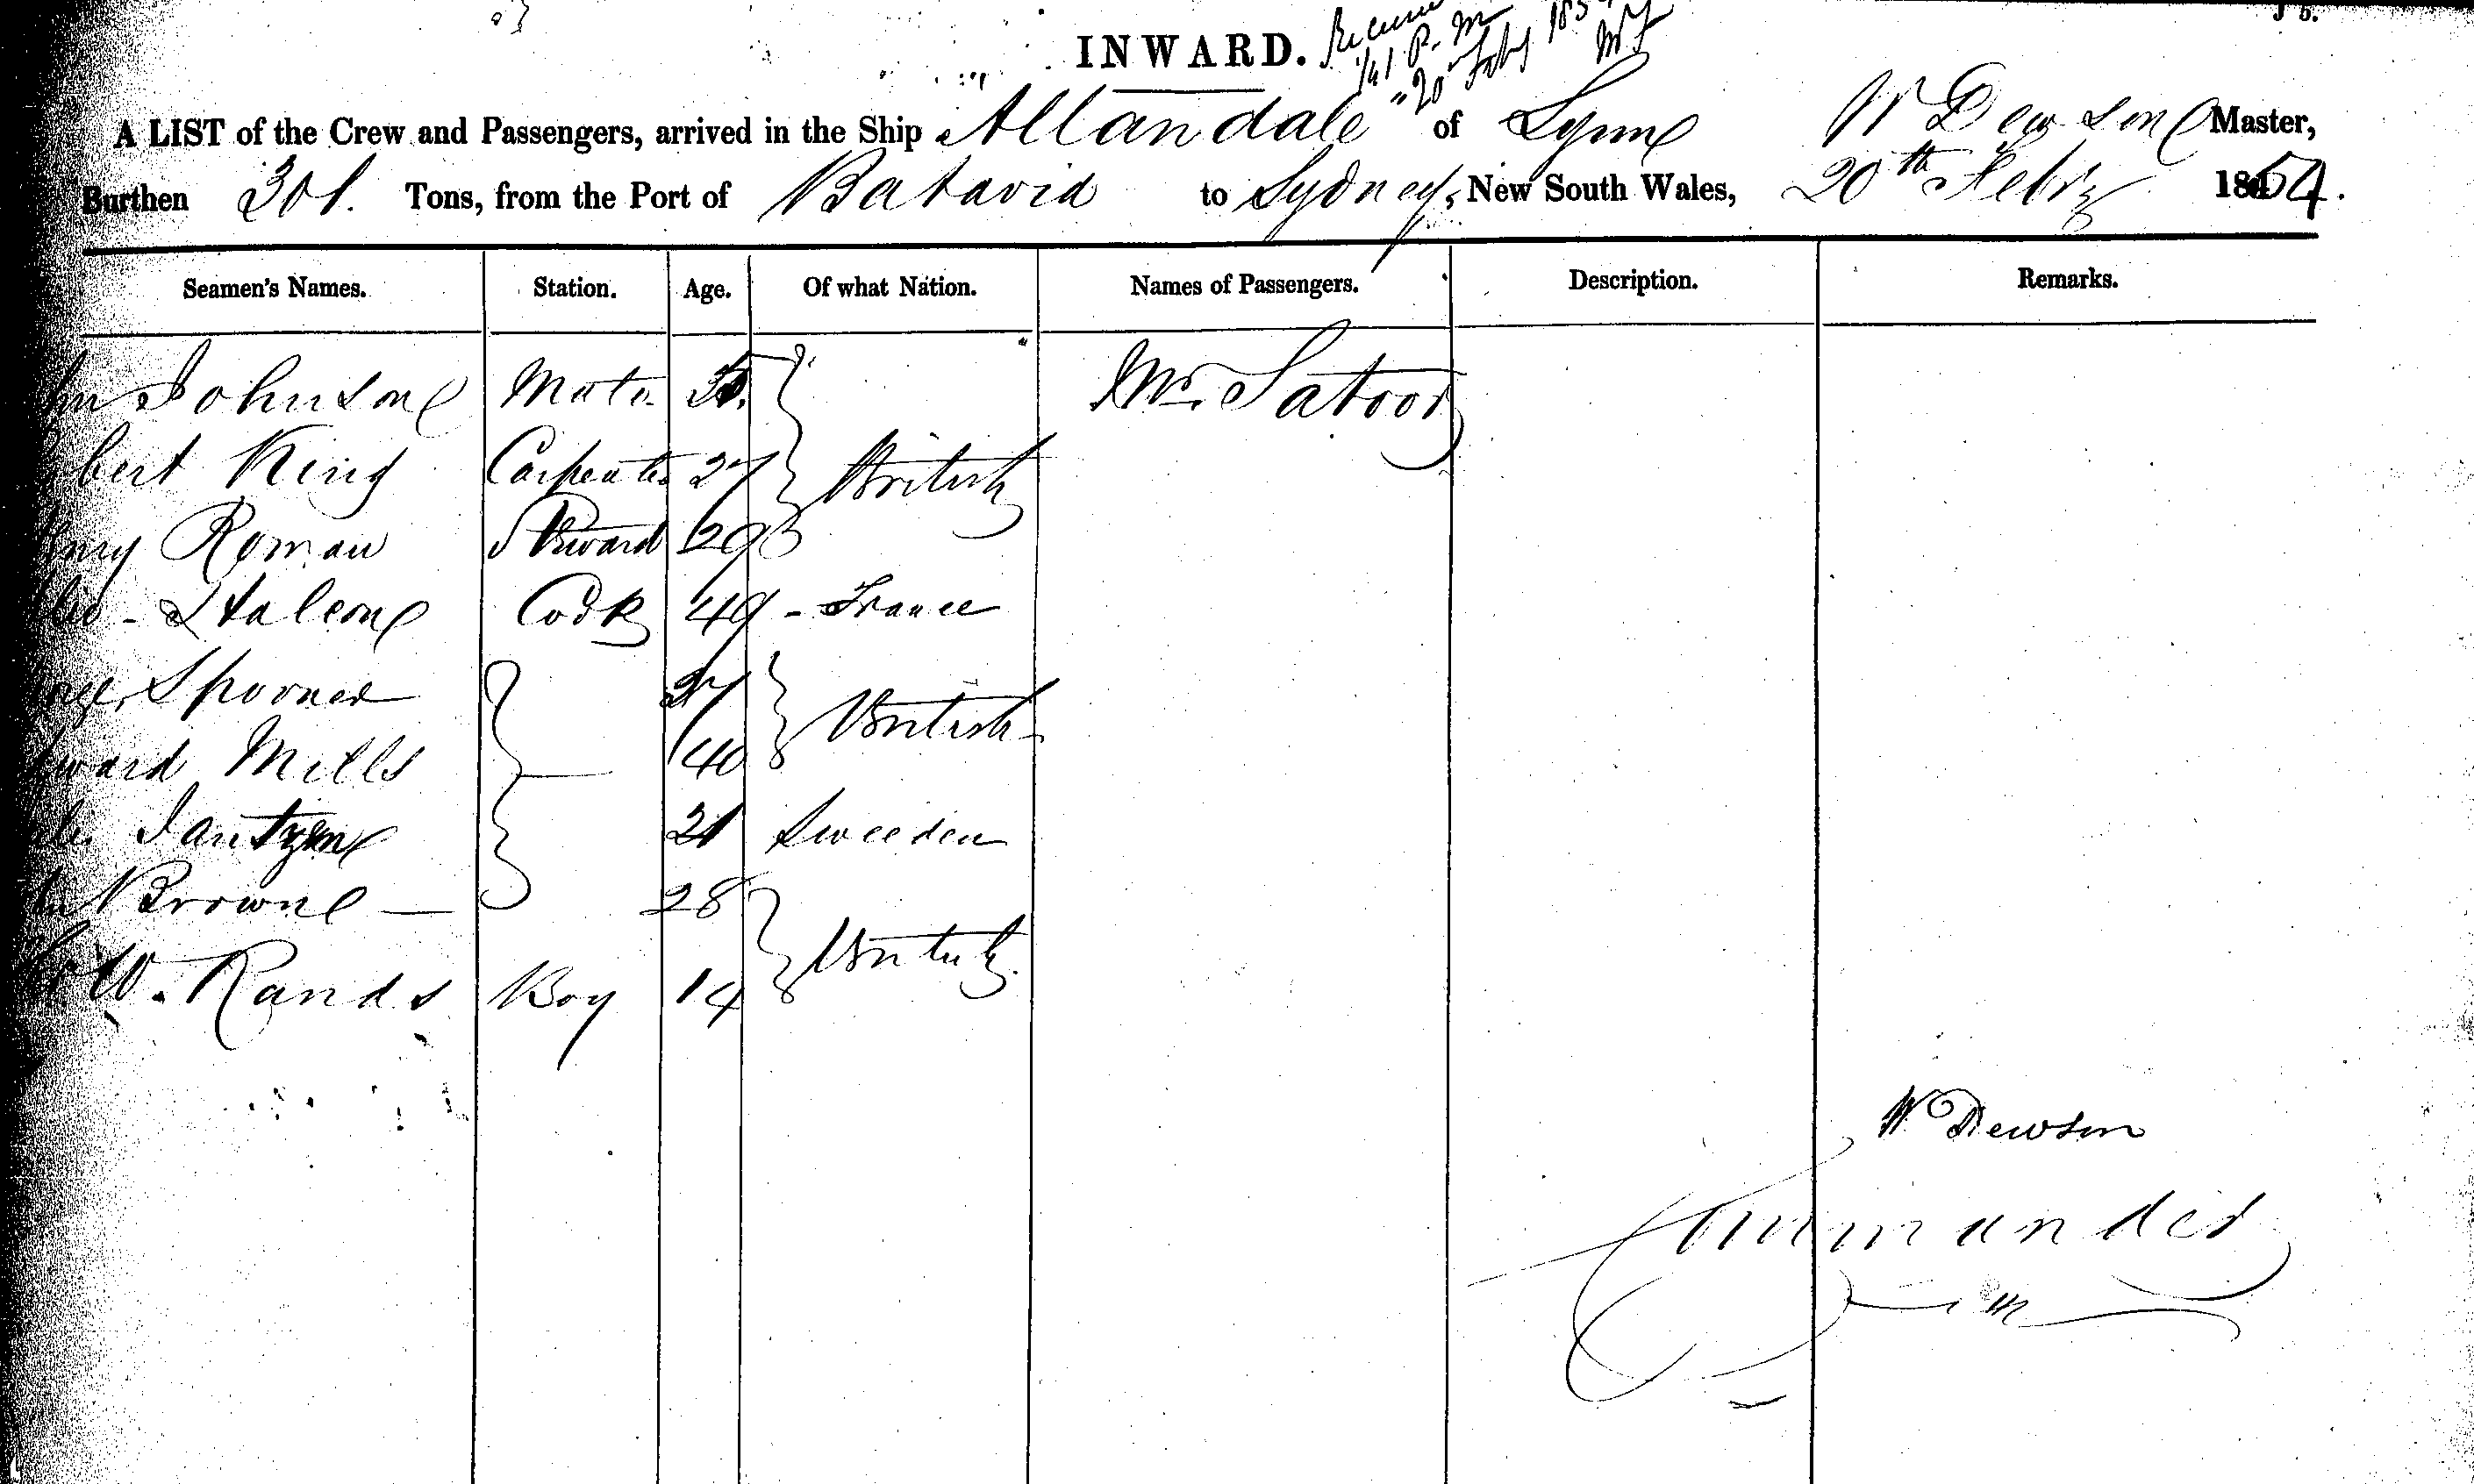 INWARD.
1/4 1 P. M
20 Feby 185
A LIST of the Crew and Passengers, arrived in the Ship Allandale of Lynn W Dewson Master,
Burthen 301. Tons, from the Port of Batavia to Sydney, New South Wales, 20th Febry 1854.
Seamen's Names. Station. Age. Of what Nation. Names of Passengers. Description. Remarks.
Johnson Mate Mr. Satoor
King Carpenter 27 British
Roman Steward 29
Cook 49 - France
Spooner 27
Mills 40 British
Jantzen 21 Sweeden
Brown 28
W. Rands Boy 14 British
W Dewson
Commander